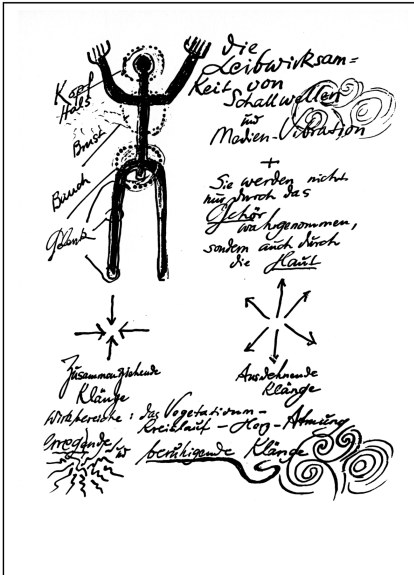 Die
Leibwirksam=
keit von
Schallwellen
und
Medien-Vibration
Kopf
Hals
Brust
Bauch
+
Sie werden nicht
nur durch das
Gehör
wahrgenommen,
sondern auch durch
die Haut
Zusammenziehende
Klänge
Ausdehnende
Klänge
Wirkbereiche: das Vegetativum-
Kreislauf-Herz-Atmung
Erregende und beruhigende Klänge